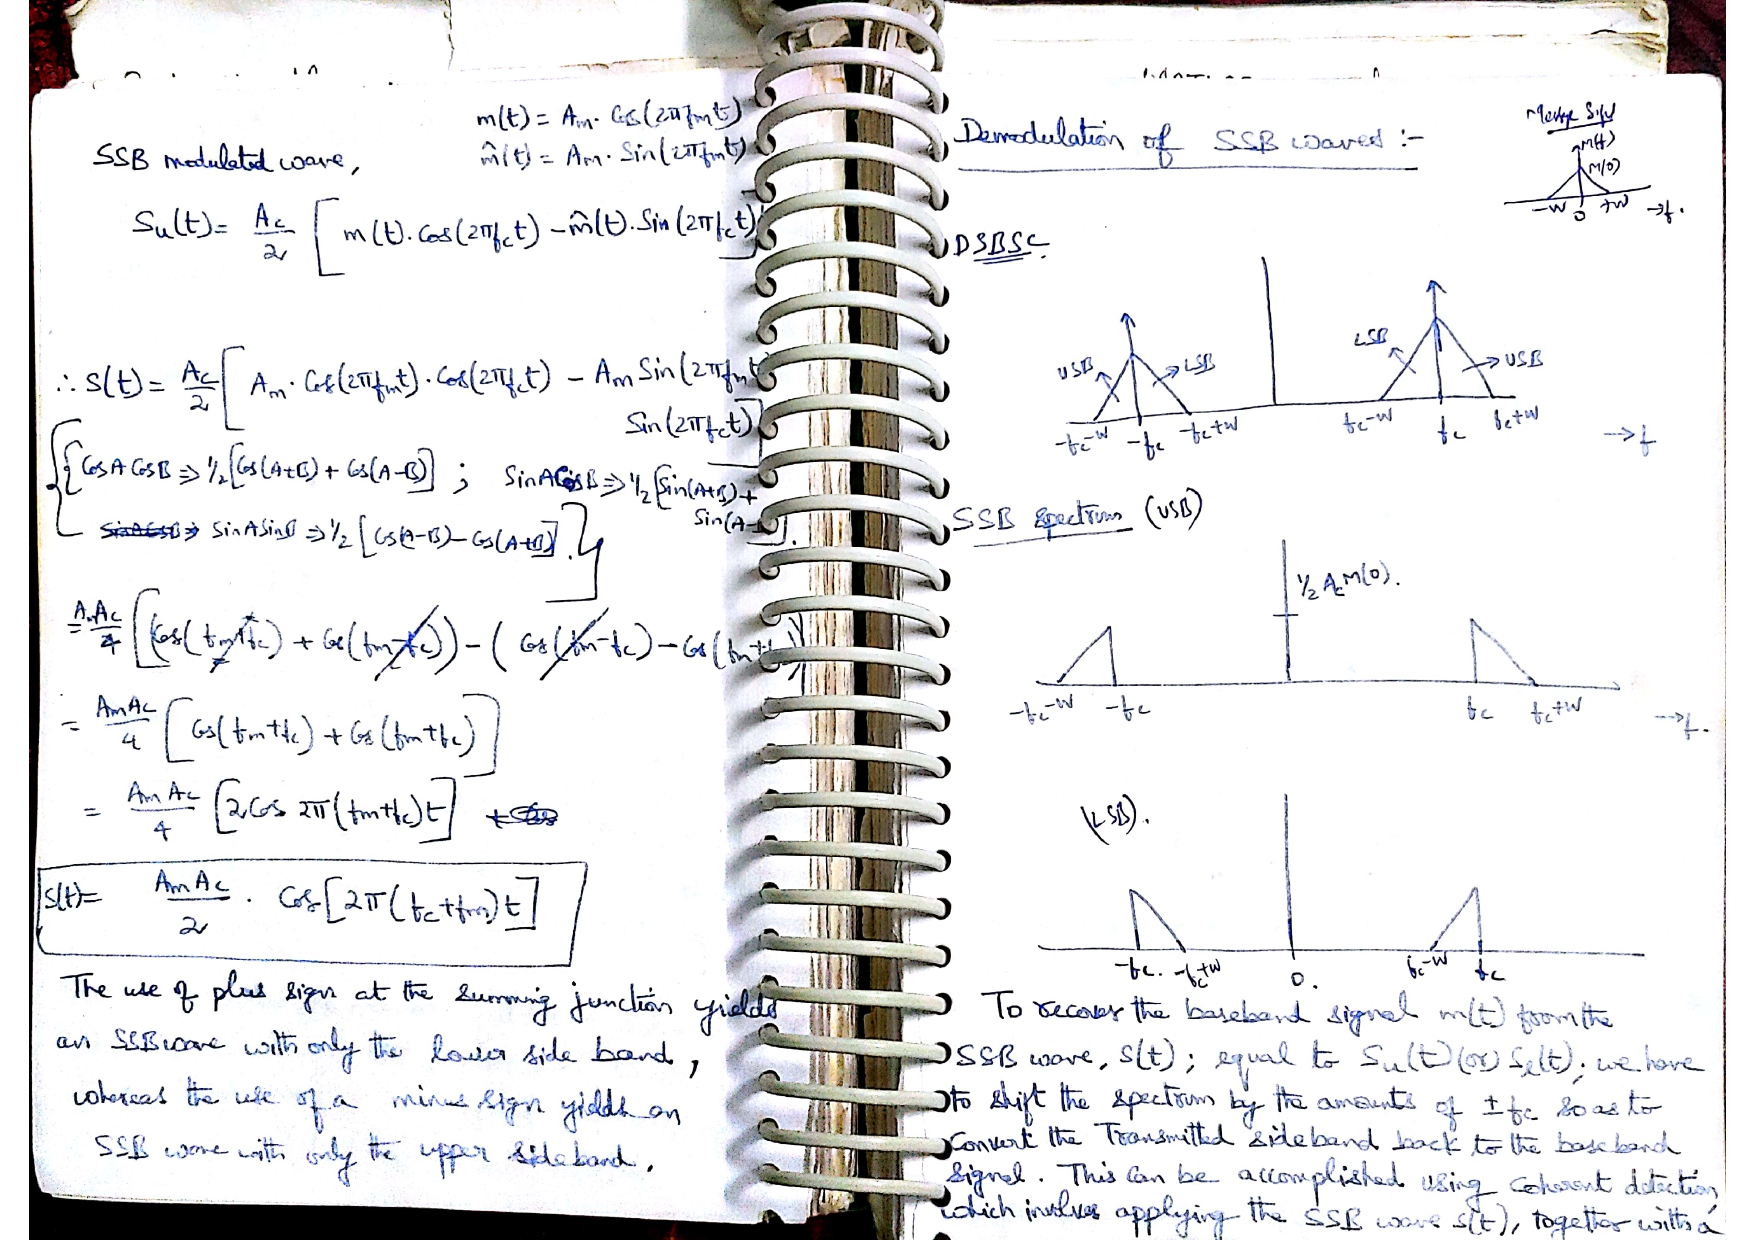 m(t) = Am. Cos(2πfmt)
SSB modulated wave, m̂(t) = Am. Sin(2πfmt)
Su(t) = Ac/2 [ m(t). Cos(2πfct) – m̂(t). Sin(2πfct)]
∴ S(t) = Ac/2 [ Am. Cos(2πfmt). Cos(2πfct) – Am Sin(2πfmt)
Sin(2πfct)]
{{ CosA CosB ⇒ 1/2[Cos(A+B) + Cos(A–B)] ; SinA CosB ⇒ 1/2 [Sin(A+B) +
Sin(A–B)].
SinA SinB ⇒ 1/2 [Cos(A–B) – Cos(A+B)] }
= AmAc/4 [(Cos(fm+fc) + Cos(fm–fc)) – ( Cos(fm–fc) – Cos(fm+fc))
= AmAc/4 [ Cos(fm+fc) + Cos(fm+fc) ]
= Am Ac/4 [2 Cos 2π(fm+fc)t]
S(t) = Am Ac/2 . Cos[2π(fc+fm)t]
The use of plus sign at the summing junction yields
an SSB wave with only the lower side band,
whereas the use of a minus sign yields an
SSB wave with only the upper sideband.
Demodulation of SSB waves :-
Message Sigl
M(f)
M(0)
-W 0 +W →f.
DSBSC.
USB LSB LSB USB
-fc-W -fc -fc+W fc-W fc fc+W →f
SSB Spectrum (USB)
1/2 Ac M(0).
-fc-W -fc fc fc+W →f.
(LSB).
-fc. -fc+W 0. fc-W fc
To recover the baseband signal m(t) from the
SSB wave, S(t) ; equal to Su(t) (or) Sl(t); we have
to shift the spectrum by the amounts of ± fc so as to
Convert the Transmitted sideband back to the baseband
Signal. This can be accomplished using coherent detection,
which involves applying the SSB wave s(t), together with a